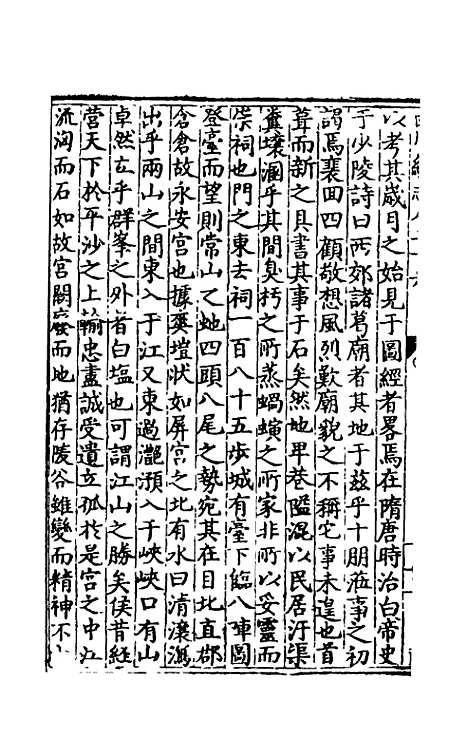 以考其歲月之始見于圖經者畧焉在隋唐時治白帝史
于少陵詩曰西郊諸葛廟者其地于兹乎十朋涖事之初
謁焉裵回四顧敬想風烈歎廟貌之不稱它事未遑也首
葺而新之具書其事于石矣然地卑巷隘混以民居汙渠
糞壤溷乎其間臭朽之所蒸蝸螾之所家非所以妥靈而
崇祠也門之東去祠一百八十五步城有臺下臨八陣圖
登臺而望則常山之虵四頭八尾之勢宛其在目北直郡
倉倉故永安宫也據爽塏狀如屏宫之北有水曰清瀼瀉
出乎兩山之間東入于江又東過灔澦入于峽峽口有山
卓然立乎群峯之外者白塩也可謂江山之勝矣侯昔經
營天下於平沙之上輸忠盡誠受遺立孤於是宫之中
流洶而石如故宫闕廢而地猶存陵谷雖變而精神不